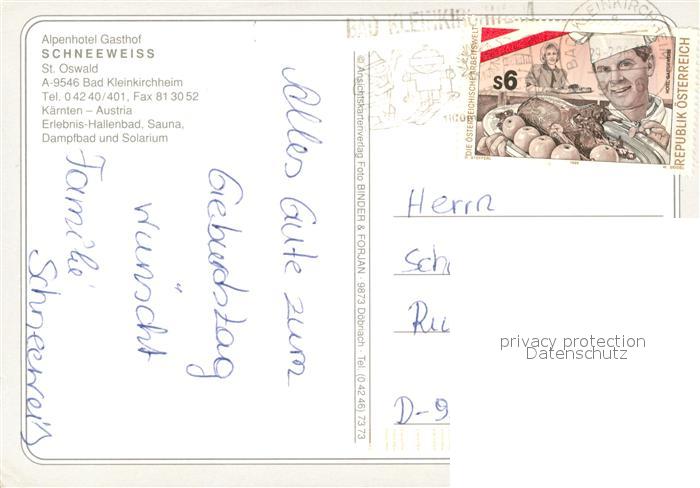 Alpenhotel Gasthof
SCHNEEWEISS
St. Oswald
A-9546 Bad Kleinkirchheim
Tel. 0 42 40/401, Fax 81 30 52
Kärnten – Austria
Erlebnis-Hallenbad, Sauna,
Dampfbad und Solarium
Alles Gute zum
Geburdstag
wünscht
Familie
Schneeweiß
© Ansichtskartenverlag Foto BINDER & FORJAN · 9873 Döbriach · Tel. (0 42 46) 73 73
BAD KLEINKIRCHHEIM
BAD KLEINKIRCHHEIM
DIE ÖSTERREICHISCHE ARBEITSWELT
s6
REPUBLIK ÖSTERREICH
Herrn
Sch
D-9
privacy protection
Datenschutz